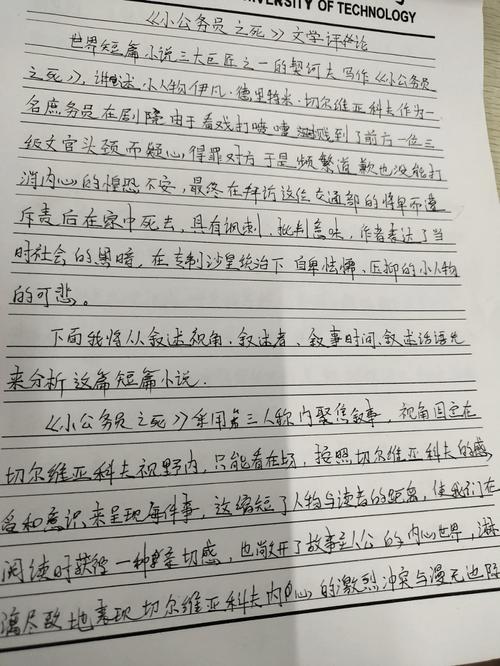 UNIVERSITY OF TECHNOLOGY
《小公务员之死》文学评论
世界短篇小说三大巨匠之一的契诃夫写作《小公务员
之死》，讲述小人物伊凡·德里特米·切尔维亚科夫作为一
名庶务员在剧院由于看戏打喷嚏溅到了前方一位三
级文官头颈而疑心得罪对方于是频繁道歉也没能打
消内心的惶恐不安，最终在拜访这位交通部的将军而遭
斥责后在家中死去，具有讽刺、批判意味，作者表达了当
时社会的黑暗，在专制沙皇统治下自卑怯懦、压抑的小人物
的可悲。
下面我将从叙述视角、叙述者、叙事时间、叙述话语
来分析这篇短篇小说.
《小公务员之死》采用第三人称内聚焦叙事，视角固定在
切尔维亚科夫视野内，只能看在场，按照切尔维亚科夫的感
受和意识来呈现每件事，这缩短了人物与读者的距离，使我们在
阅读时获得一种亲切感，也敞开了故事主人公的内心世界，淋
漓尽致地表现切尔维亚科夫内心的激烈冲突与漫无边际